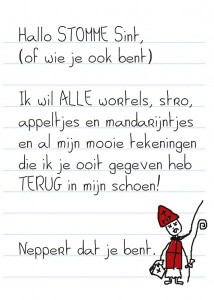 Hallo STOMME Sint,
(of wie je ook bent)
Ik wil ALLE wortels, stro,
appeltjes en mandarijntjes
en al mijn mooie tekeningen
die ik je ooit gegeven heb
TERUG in mijn schoen!
Neppert dat je bent.